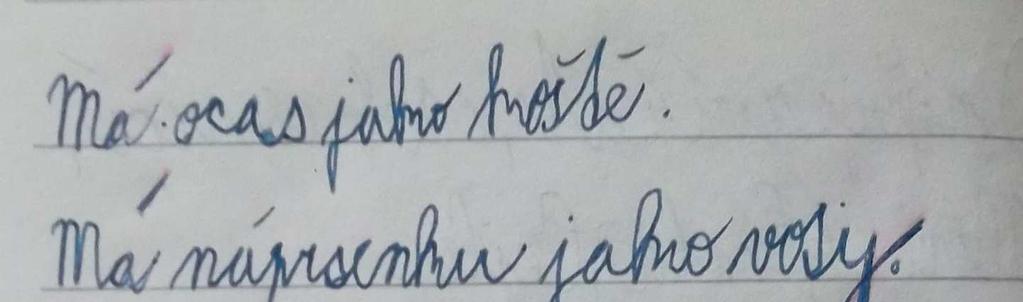 Má ocas jako koště.
Má náprsenku jako vosy.